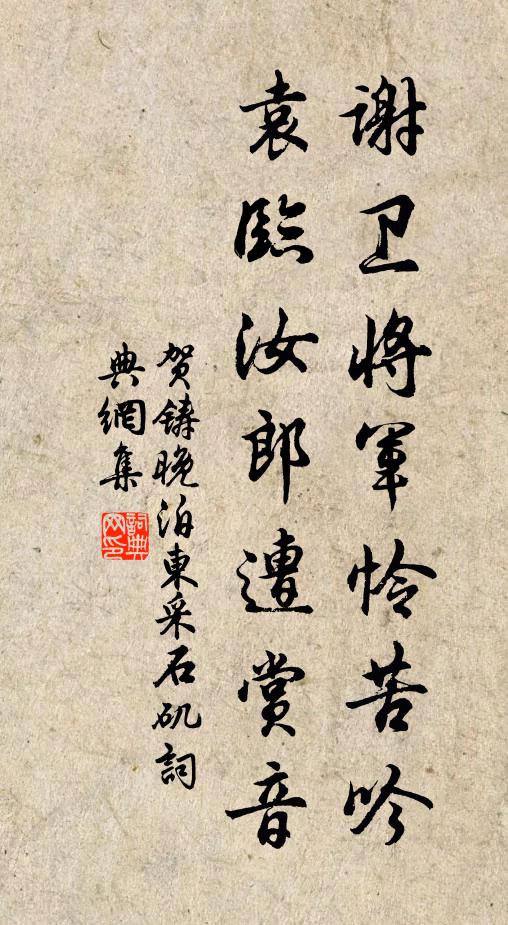 谢卫将军怜苦吟
袁臨汝郎遭赏音
贺鑄晚泊東采石矶詞
典網集
詞典
网印